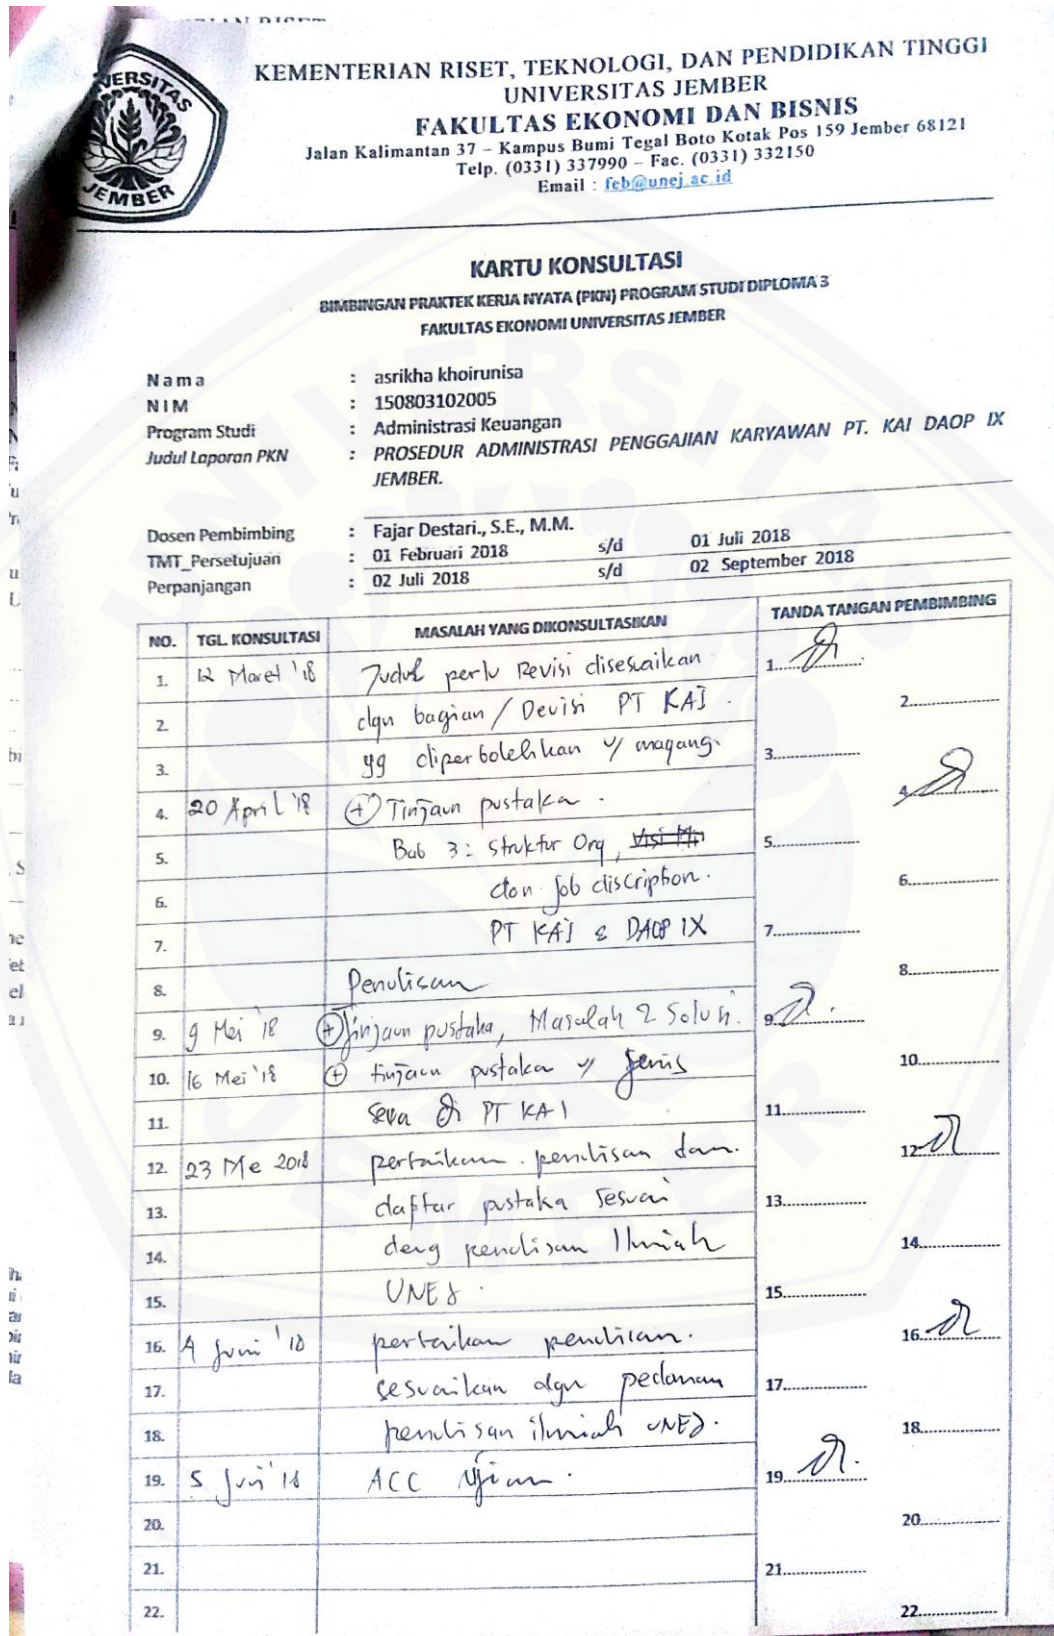 KEMENTERIAN RISET, TEKNOLOGI, DAN PENDIDIKAN TINGGI
UNIVERSITAS JEMBER
FAKULTAS EKONOMI DAN BISNIS
Jalan Kalimantan 37 – Kampus Bumi Tegal Boto Kotak Pos 159 Jember 68121
Telp. (0331) 337990 – Fac. (0331) 332150
Email : feb@unej.ac.id
KARTU KONSULTASI
BIMBINGAN PRAKTEK KERJA NYATA (PKN) PROGRAM STUDI DIPLOMA 3
FAKULTAS EKONOMI UNIVERSITAS JEMBER
Nama : asrikha khoirunisa
NIM : 150803102005
Program Studi : Administrasi Keuangan
Judul Laporan PKN : PROSEDUR ADMINISTRASI PENGGAJIAN KARYAWAN PT. KAI DAOP IX
JEMBER.
Dosen Pembimbing : Fajar Destari., S.E., M.M.
TMT_Persetujuan : 01 Februari 2018 s/d 01 Juli 2018
Perpanjangan : 02 Juli 2018 s/d 02 September 2018
NO. TGL. KONSULTASI MASALAH YANG DIKONSULTASIKAN TANDA TANGAN PEMBIMBING
1. 12 Maret '18 Judul perlu Revisi disesuaikan 1.
2. dgn bagian / Devisi PT KAI . 2.
3. yg diperbolehkan u/ magang. 3.
4. 20 April '18 (+) Tinjaun pustaka . 4.
5. Bab 3 : Struktur Org, 5.
6. dan job discription. 6.
7. PT KAI & DAOP IX 7.
8. Penulisan 8.
9. 9 Mei '18 (+) Tinjaun pustaka, Masalah 2 Solusi. 9.
10. 16 Mei '18 (+) tinjaun pustaka u/ Jenis 10.
11. sewa di PT KAI 11.
12. 23 Me 2018 perbaikan penulisan dan. 12.
13. daftar pustaka sesuai 13.
14. deng penulisan Ilmiah 14.
15. UNEJ . 15.
16. 4 Juni '18 perbaikan penulisan. 16.
17. sesuaikan dgn pedoman 17.
18. penulisan ilmiah UNEJ. 18.
19. 5 Juni '18 ACC Ujian . 19.
20. 20.
21. 21.
22. 22.